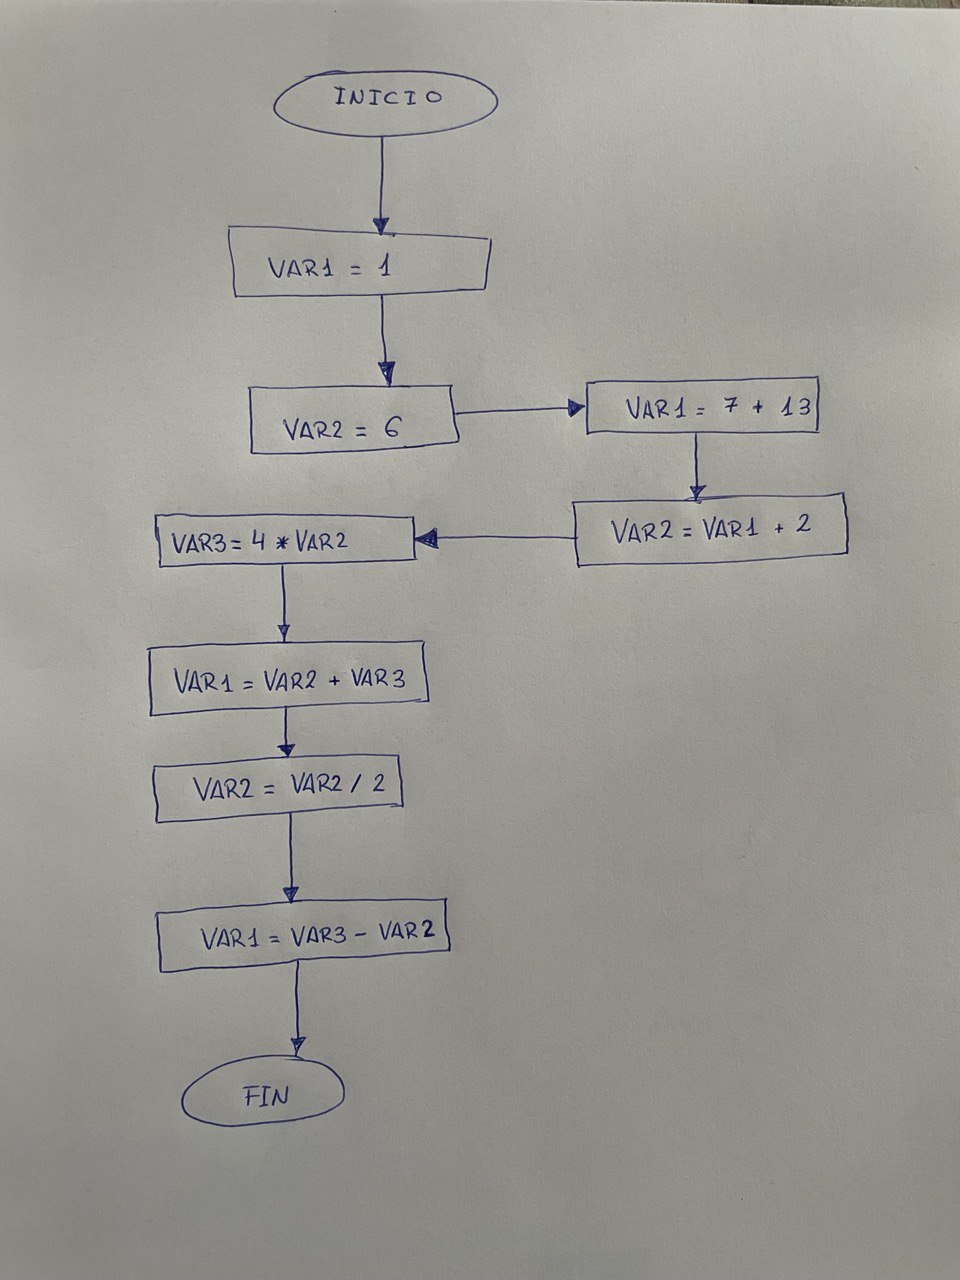 INICIO
VAR1 = 1
VAR2 = 6
VAR1 = 7 + 13
VAR2 = VAR1 + 2
VAR3 = 4 * VAR2
VAR1 = VAR2 + VAR3
VAR2 = VAR2 / 2
VAR1 = VAR3 - VAR2
FIN